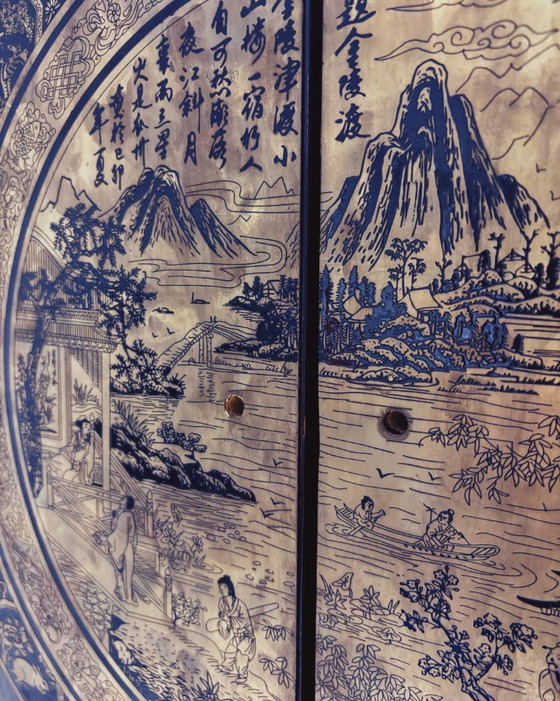 題金陵渡
金陵津渡小
山樓一宿行人
自可愁潮落
夜江斜月
裏兩三星
火是瓜州
於己卯
年夏